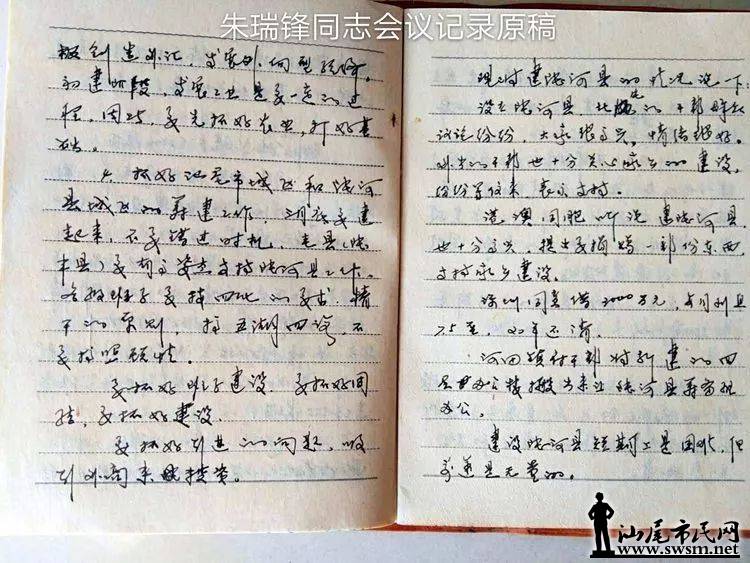 朱瑞锋同志会议记录原稿
极创造外汇，发展外向型经济。
初建阶段，发展工业是要一定的过
程，因此，要先抓好农业，打好基
础。
4. 抓好汕尾市城区和陆河
县城区的筹建工作，满腔要建
起来，不要错过时机，老县（陆
丰县）要有高姿态支持陆河县工作。
各级班子要按四化的要求，精
干的原则，搞五湖四海，不
要搞照顾性。
要抓好班子建设，要抓好团
结，要抓好建设。
要抓好引进的问题，吸
引外商来投资。
现对建陆河县的情况说一下：
设立陆河县，北片的干部群众
议论纷纷，大家很高兴，情绪很好。
外出的干部也十分关心家乡的建设，
纷纷写信来表示支持。
港澳同胞听说建陆河县，
也十分高兴，提出要捐赠一部份东西，
支持家乡建设。
深圳同意借2000万元，每月利息
7.5厘，20年还清。
河田镇付干部将新建的四
层办公楼搬出来让陆河县筹备组
办公。
建设陆河县短期工是困难，但
前途是光明的。
汕尾市民网
www.swsm.net